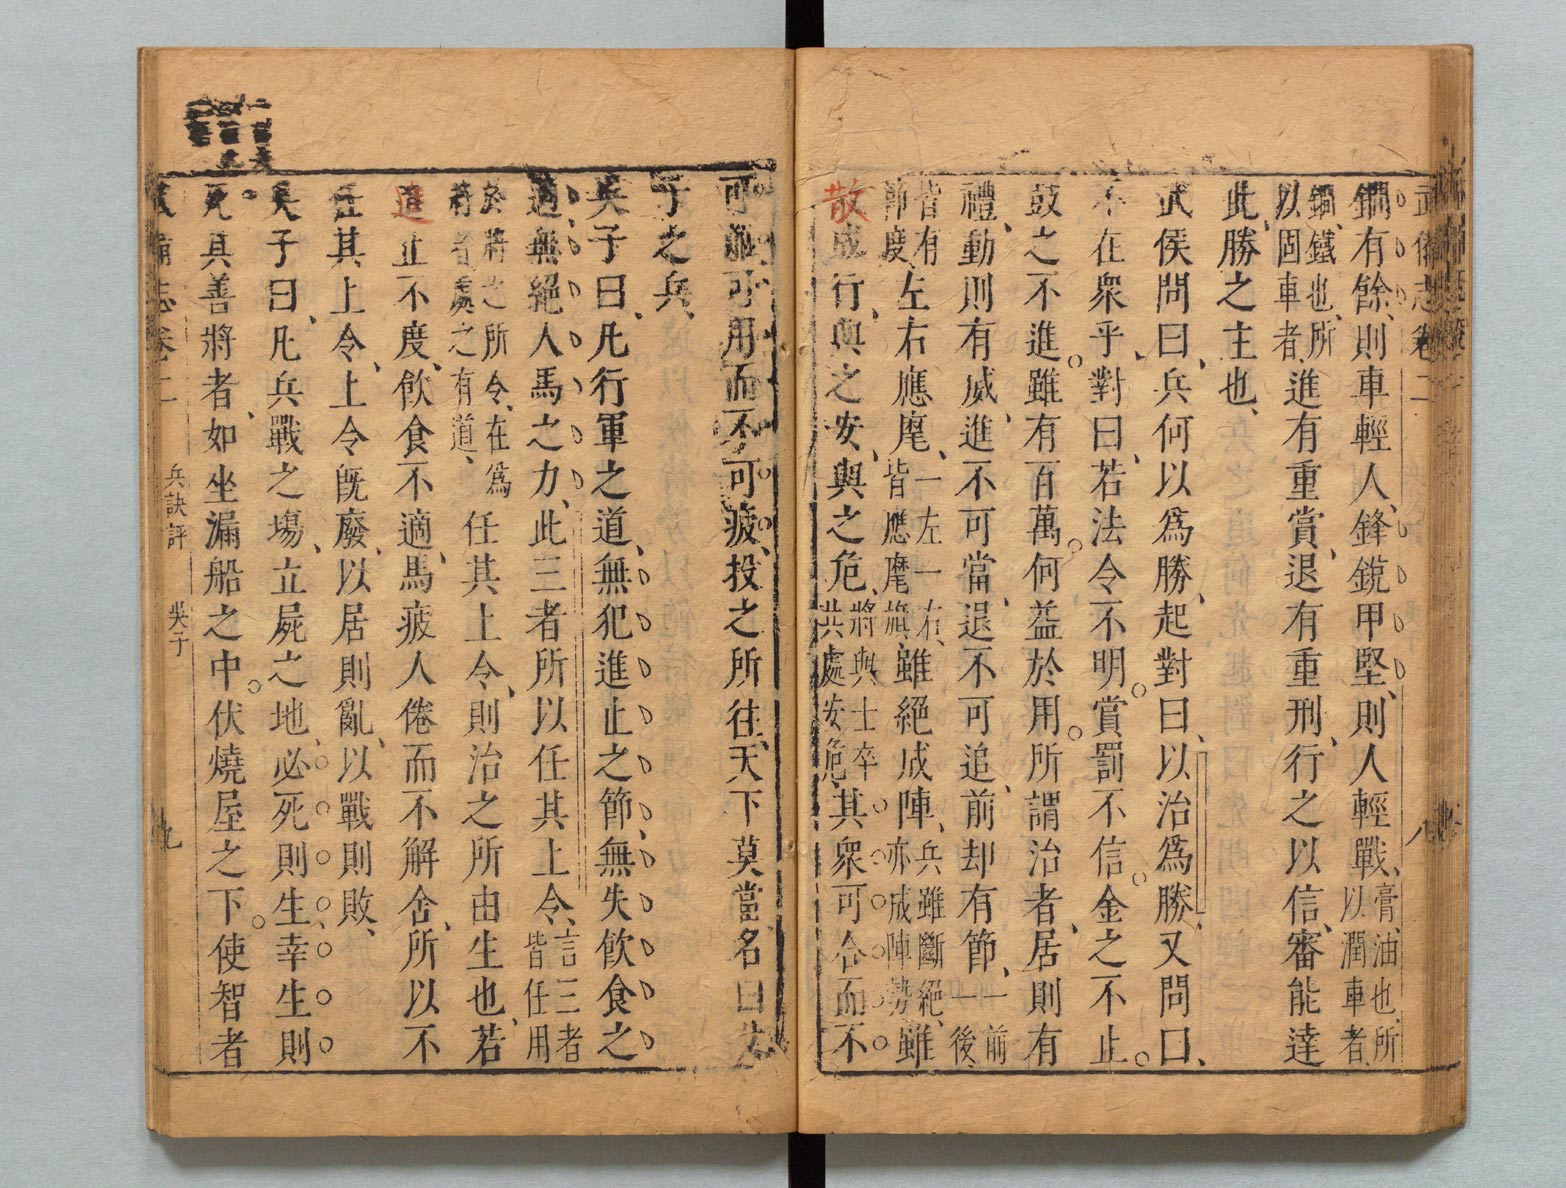 武備志卷二
鐧有餘、則車輕人、鋒銳甲堅、則人輕戰、膏油也、所以潤車者、
鐧鐵也、所以固車者、進有重賞、退有重刑、行之以信、審能達
此、勝之主也、
武侯問曰、兵何以爲勝、起對曰、以治爲勝、又問曰、
不在衆乎、對曰、若法令不明。賞罰不信。金之不止。
鼓之不進。雖有百萬。何益於用。所謂治者、居則有
禮、動則有威、進不可當、退不可追、前却有節、一前一後、
皆有節度、左右應麾、一左一右、皆應麾旗、雖絕成陣、兵雖斷絕、亦成陣勢、雖
散成行、與之安、與之危、將與士卒共處安危、其衆可合而不
可離可用而不可疲、投之所往、天下莫當、名曰父
子之兵、
吳子曰、凡行軍之道、無犯進止之節、無失飲食之
適、無絕人馬之力、此三者所以任其上令、言三者皆任用
於將之所令、在爲將者處之有道、任其上令、則治之所由生也、若
進止不度、飲食不適、馬疲人倦而不解舍、所以不
任其上令、上令旣廢、以居則亂、以戰則敗、
吳子曰、凡兵戰之場、立屍之地、必死則生、幸生則
死。其善將者、如坐漏船之中。伏燒屋之下。使智者
武備志卷二 兵訣評 吳子 九